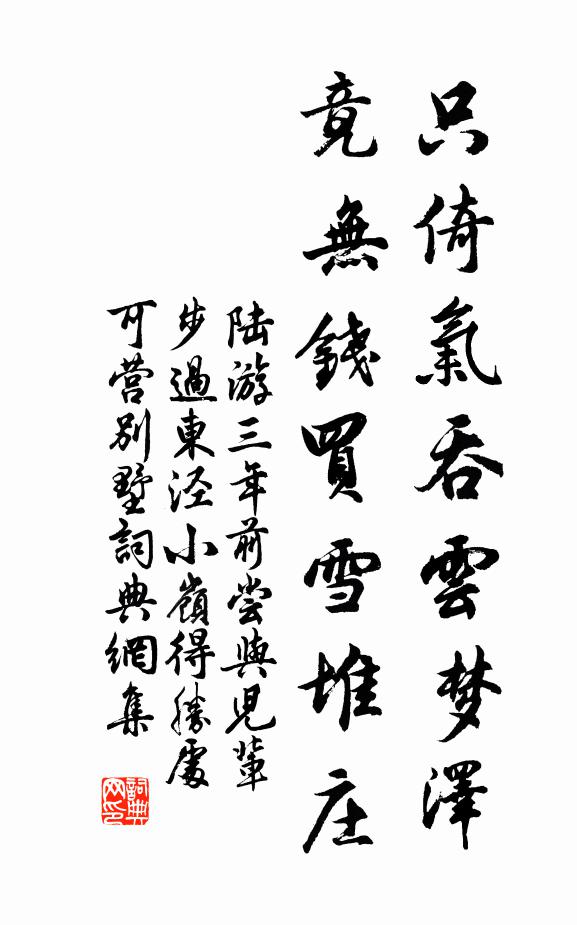 只倚氣吞雲梦澤
竟無錢買雪堆庄
陆游三年前尝與児輩
步過東泾小嶺得勝處
可营别墅詞典網集
詞典网印